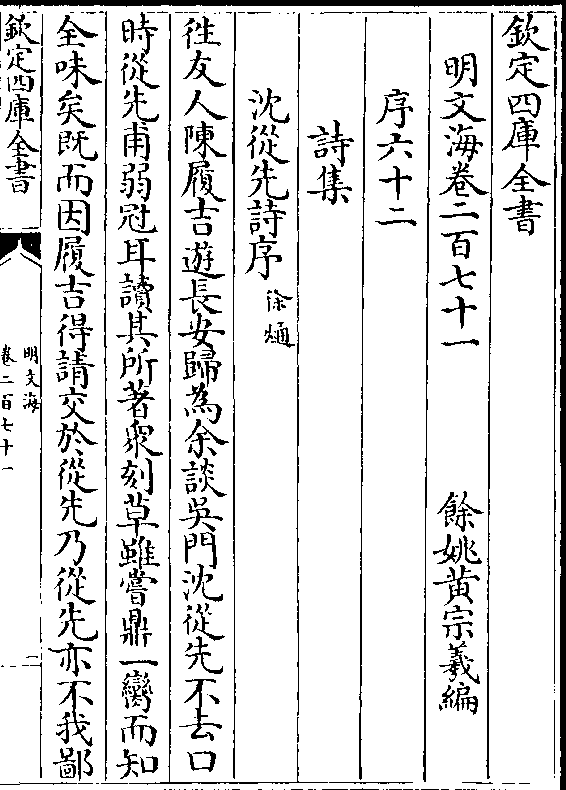 欽定四庫全書
明文海卷二百七十一
餘姚黄宗羲編
序六十二
詩集
沈從先詩序
徐𤊹
徃友人陳履吉遊長安歸為余談吳門沈從先不去口
時從先甫弱冠耳讀其所著衆刻草雖嘗鼎一臠而知
全味矣既而因履吉得請交於從先乃從先亦不我鄙
欽定四庫全書
明文海
卷二百七十一
一